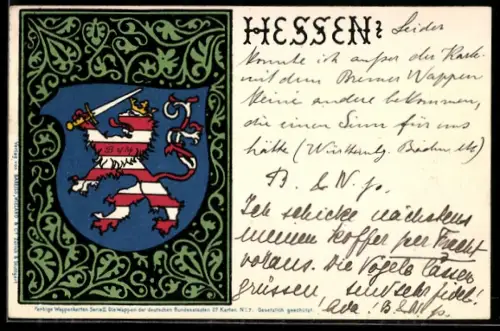 HESSEN?
Leider
konnte ich außer der Karte
mit dem Bremer Wappen
keine andere bekommen,
die einen Sinn für uns
hätte (Württembg. Baden etc)
B. & N. fo.
Ich schicke nächstens
meinen Koffer per Fracht
voraus. Die Vögels lassen
grüssen, sind sehr fidel!
Ada! B & N fo.
Farbige Wappenkarten Serie II Die Wappen der deutschen Bundesstaaten 27 Karten. N° 7. Gesetzlich geschützt.